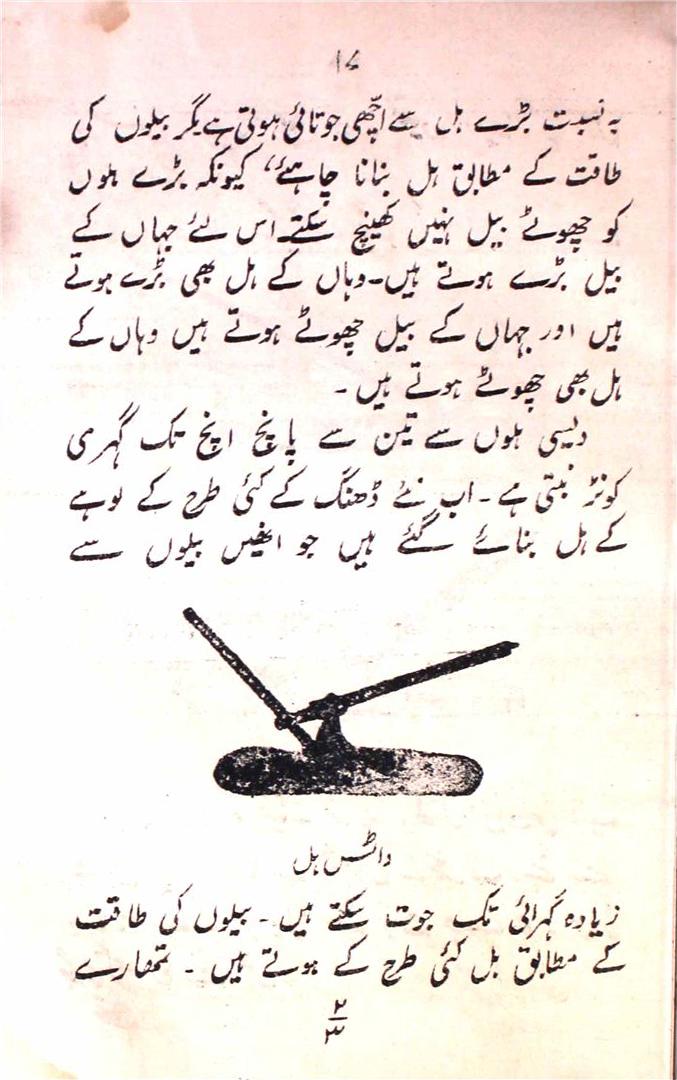 ۱۷
بہ نسبت بڑے ہل سے اچھی جوتائی ہوتی ہے مگر بیلوں کی
طاقت کے مطابق ہل بنانا چاہئے، کیونکہ بڑے ہلوں
کو چھوٹے بیل نہیں کھینچ سکتے۔ اس لئے جہاں کے
بیل بڑے ہوتے ہیں۔ وہاں کے ہل بھی بڑے ہوتے
ہیں اور جہاں کے بیل چھوٹے ہوتے ہیں وہاں کے
ہل بھی چھوٹے ہوتے ہیں۔
دیسی ہلوں سے تین سے پانچ انچ تک گہری
کونڑ بنتی ہے۔ اب نئے ڈھنگ کے کئی طرح کے لوہے
کے ہل بنائے گئے ہیں جو انھیں بیلوں سے
واٹس ہل
زیادہ گہرائی تک جوت سکتے ہیں۔ بیلوں کی طاقت
کے مطابق ہل کئی طرح کے ہوتے ہیں۔ تمھارے
۲
۳